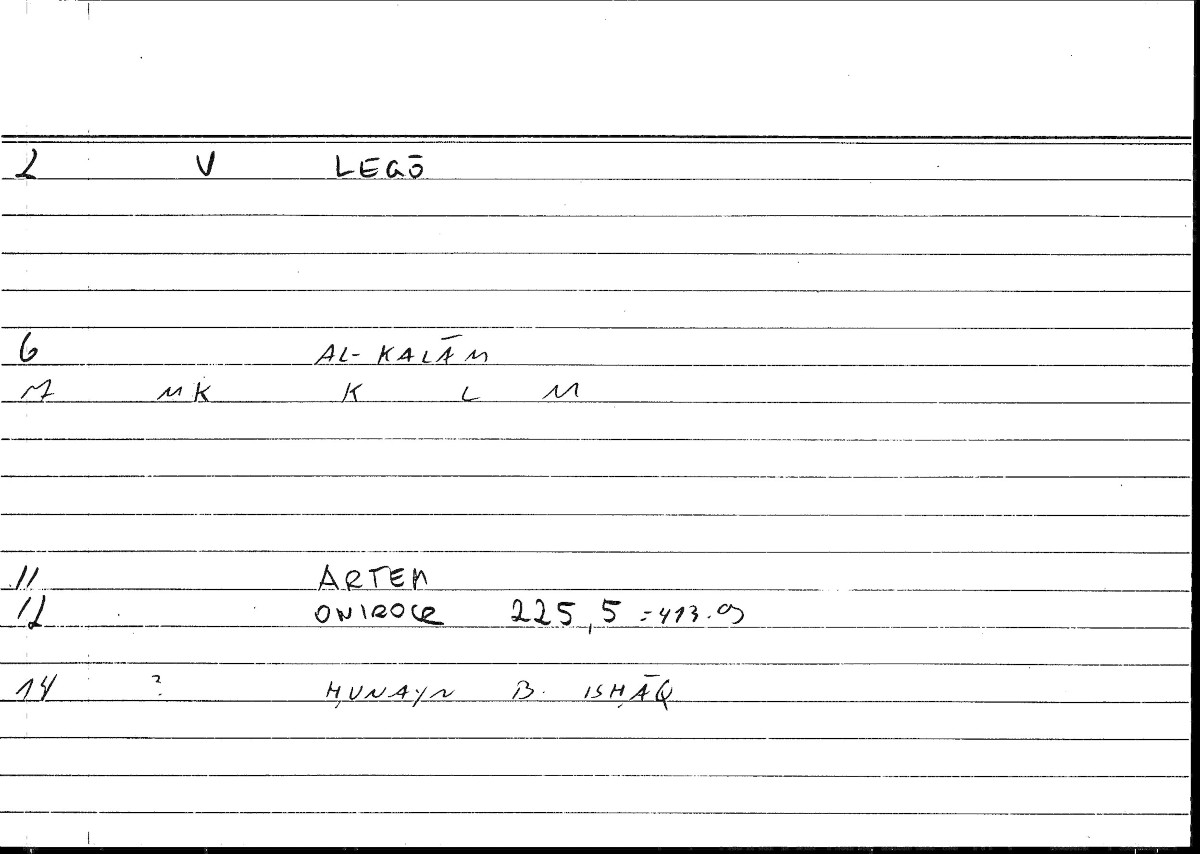 2 V LEGŌ
6 AL-KALĀM
7 MK K L M
11 ARTEM
12 ONIROCR 225,5 =413.9
14 ? ḤUNAYN B. ISḤĀQ